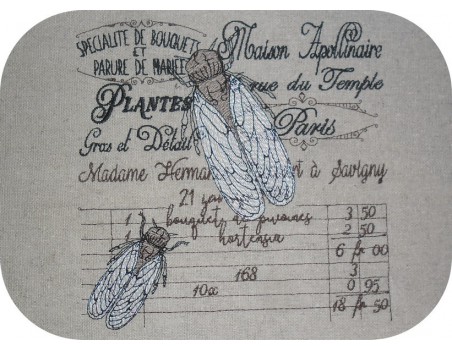 SPECIALITE DE BOUQUETS
ET
PARURE DE MARIÉE
Maison Apollinaire
rue du Temple
PLANTES
Paris
Gros et Détail
Madame Herman à Savigny
21
1 bouquet de pivoines 3 50
1 hortensia 2 50
6 fr 00
168 3
10x 0 95
18 fr 50